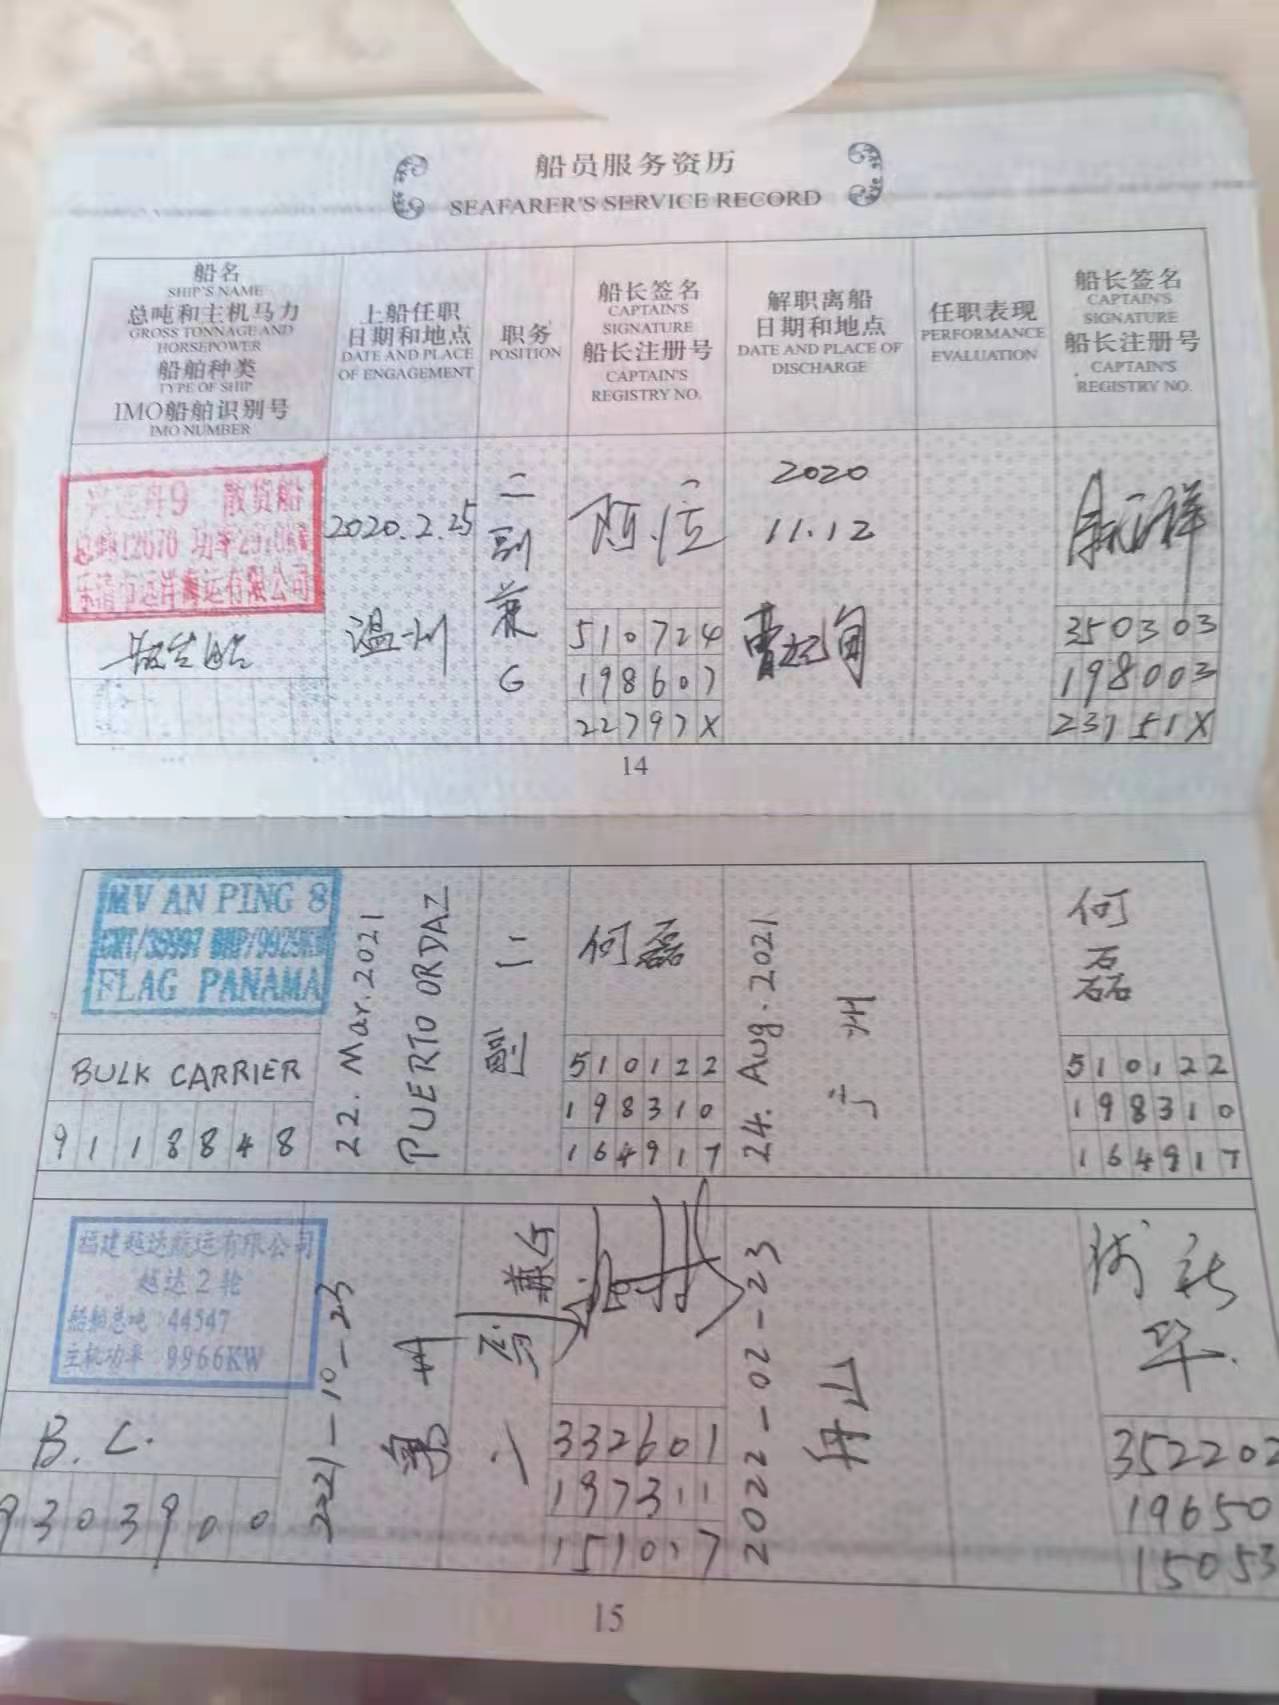 船员服务资历
SEAFARER'S SERVICE RECORD
船名
SHIP'S NAME
总吨和主机马力
GROSS TONNAGE AND
HORSEPOWER
船舶种类
TYPE OF SHIP
IMO船舶识别号
IMO NUMBER
上船任职
日期和地点
DATE AND PLACE
OF ENGAGEMENT
职务
POSITION
船长签名
CAPTAIN'S
SIGNATURE
船长注册号
CAPTAIN'S
REGISTRY NO.
解职离船
日期和地点
DATE AND PLACE OF
DISCHARGE
任职表现
PERFORMANCE
EVALUATION
船长签名
CAPTAIN'S
SIGNATURE
船长注册号
CAPTAIN'S
REGISTRY NO.
9 散货船
总吨12670 功率
乐清市远洋海运有限公司
散货船
2020.2.25
温州
二副兼G
510724
198607
22797X
2020
11.12
曹妃甸
350303
198003
23151X
14
MV AN PING 8
GRT/39997 BHP/9929KW
FLAG PANAMA
BULK CARRIER
9118848
22. Mar. 2021
PUERTO ORDAZ
二副
何磊
510122
198310
164917
24. Aug. 2021
广州
何磊
510122
198310
164917
福建越达航运有限公司
越达2轮
船舶总吨:44547
主机功率:9966KW
B.C.
9303900
2021-10-23
二副兼G
332601
197311
151017
2022-02-23
舟山
352202
19650
15053
15